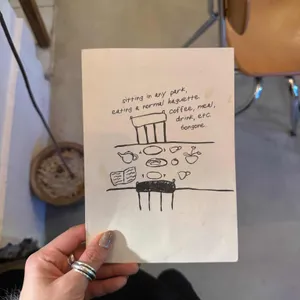 sitting in any park,
eating a normal baguette.
coffee, meal,
drink, etc